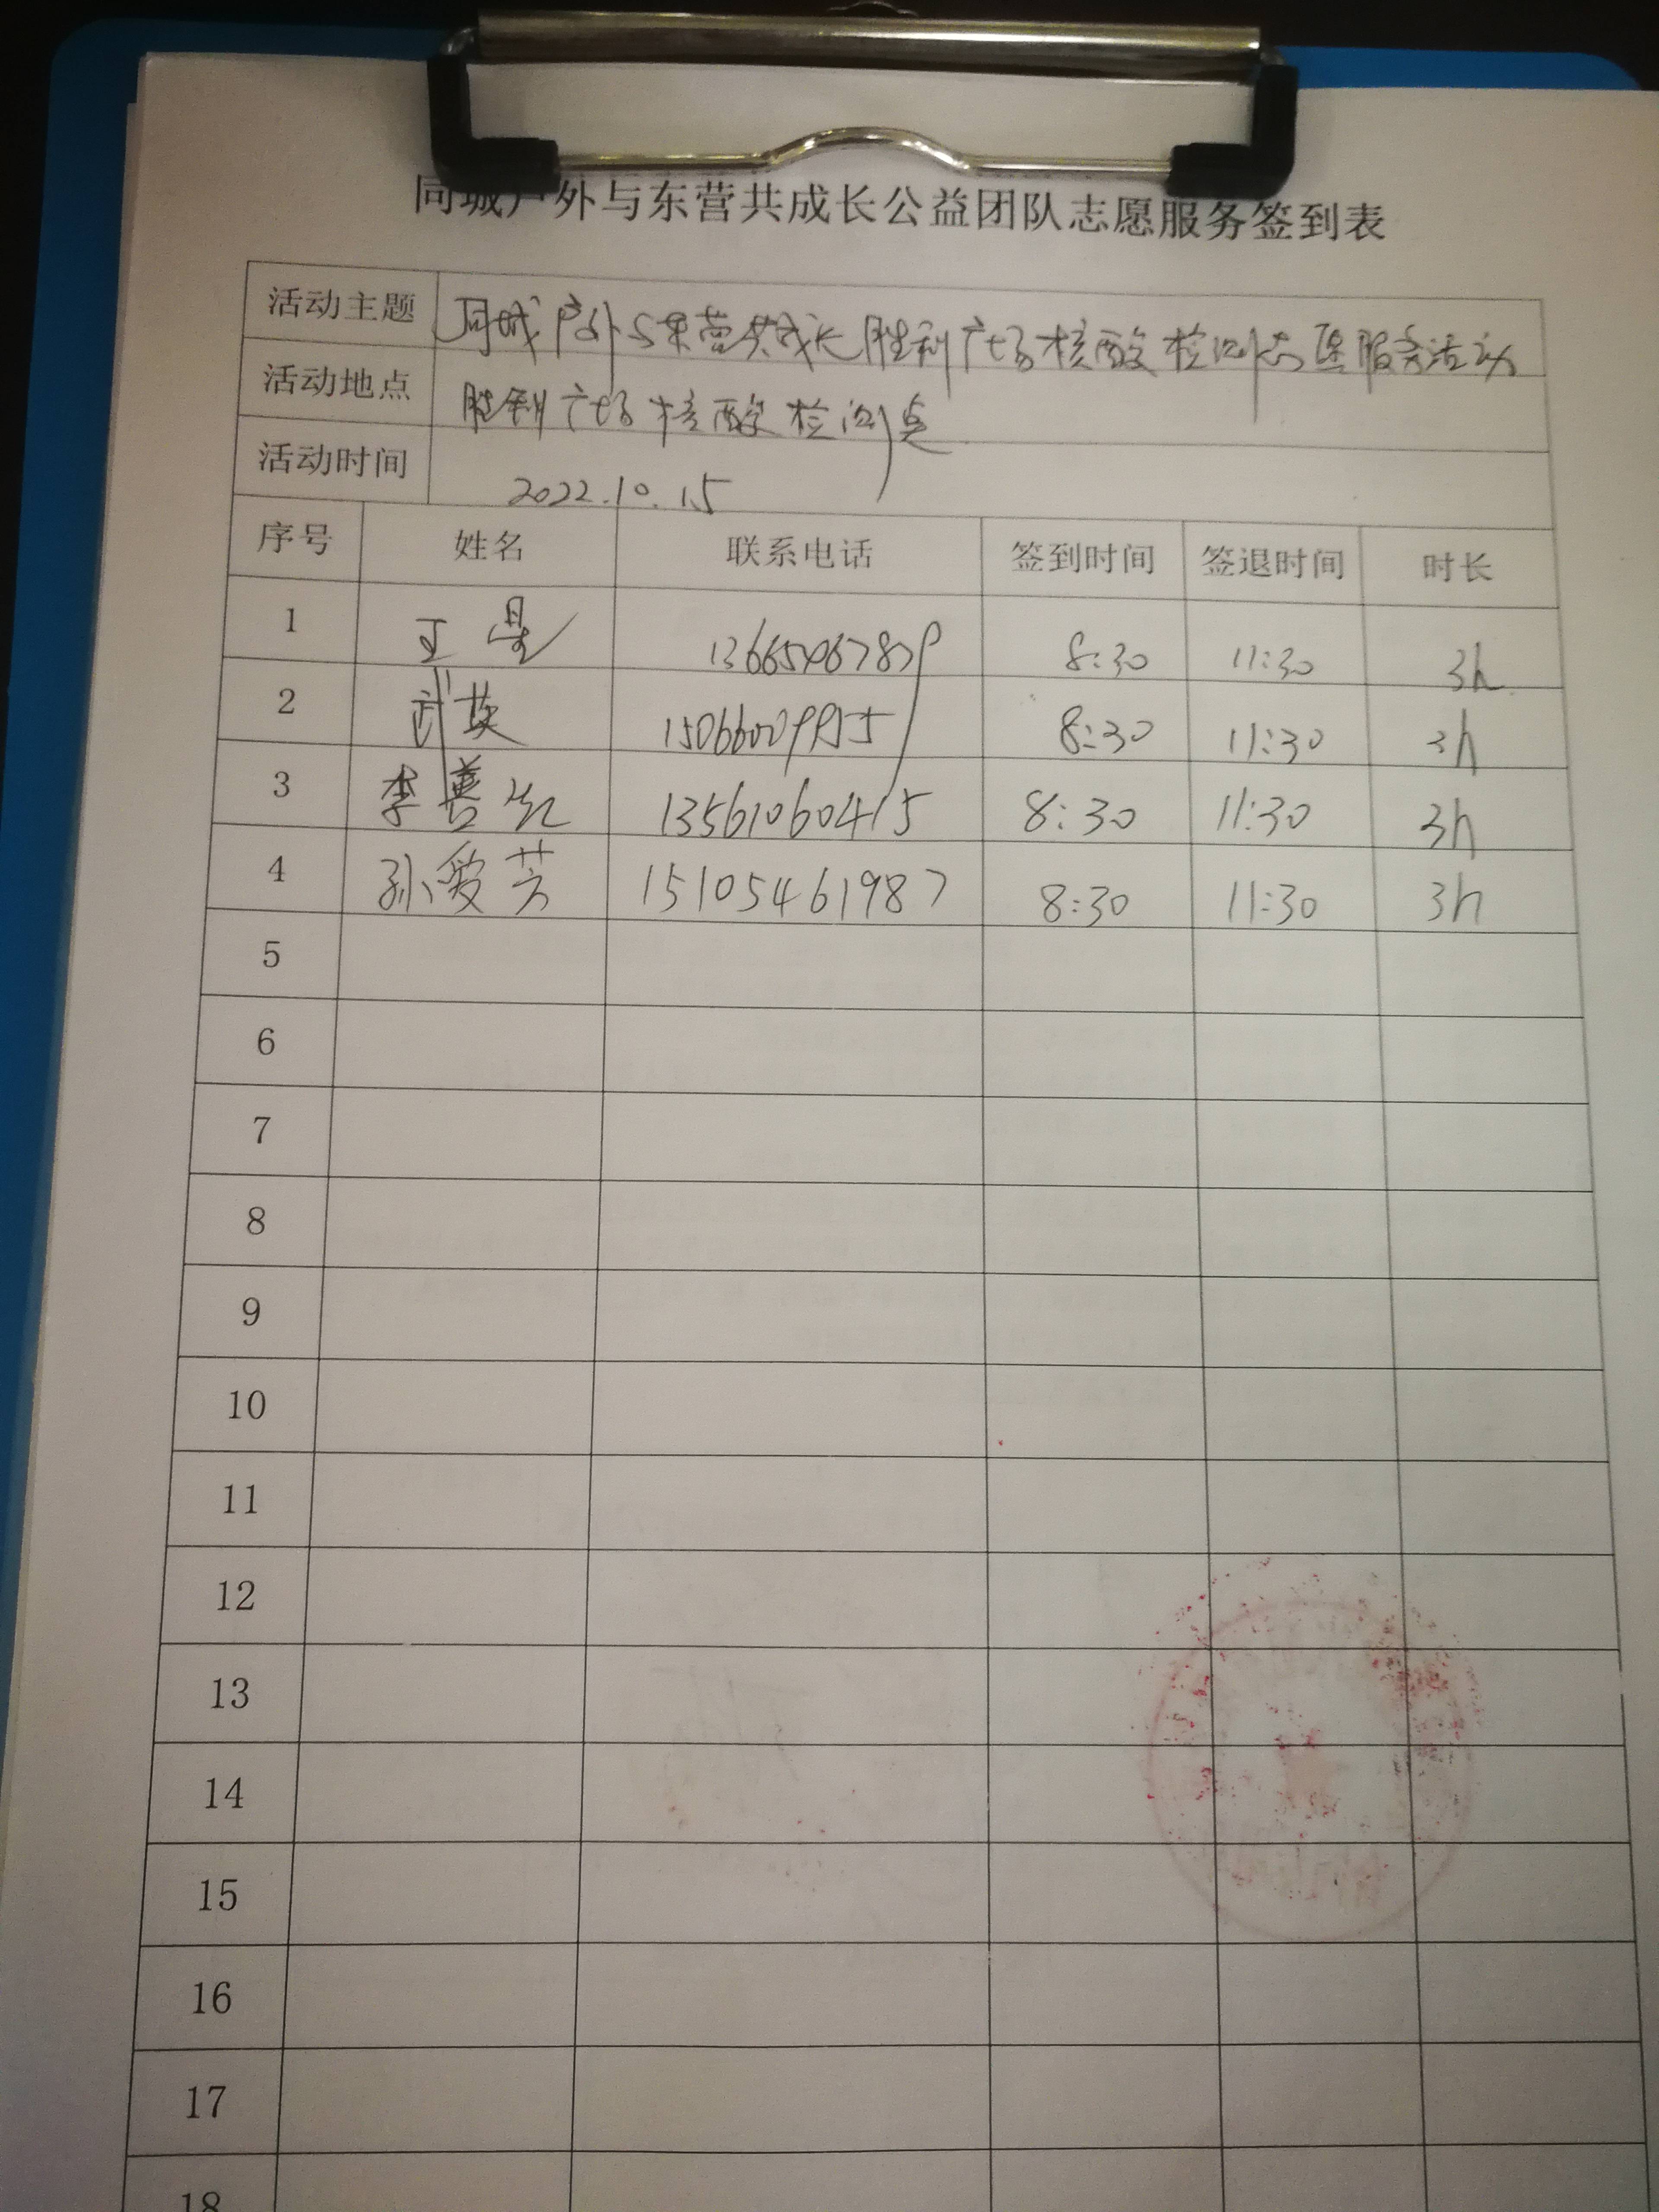 同城户外与东营共成长公益团队志愿服务签到表
活动主题 同城户外与东营共成长胜利广场核酸检测志愿服务活动
活动地点 胜利广场核酸检测点
活动时间 2022.10.15
序号 姓名 联系电话 签到时间 签退时间 时长
1 王 8:30 11:30 3h
2 武英 15066009955 8:30 11:30 3h
3 李善 13561060415 8:30 11:30 3h
4 孙爱芳 15105461987 8:30 11:30 3h
5
6
7
8
9
10
11
12
13
14
15
16
17
18